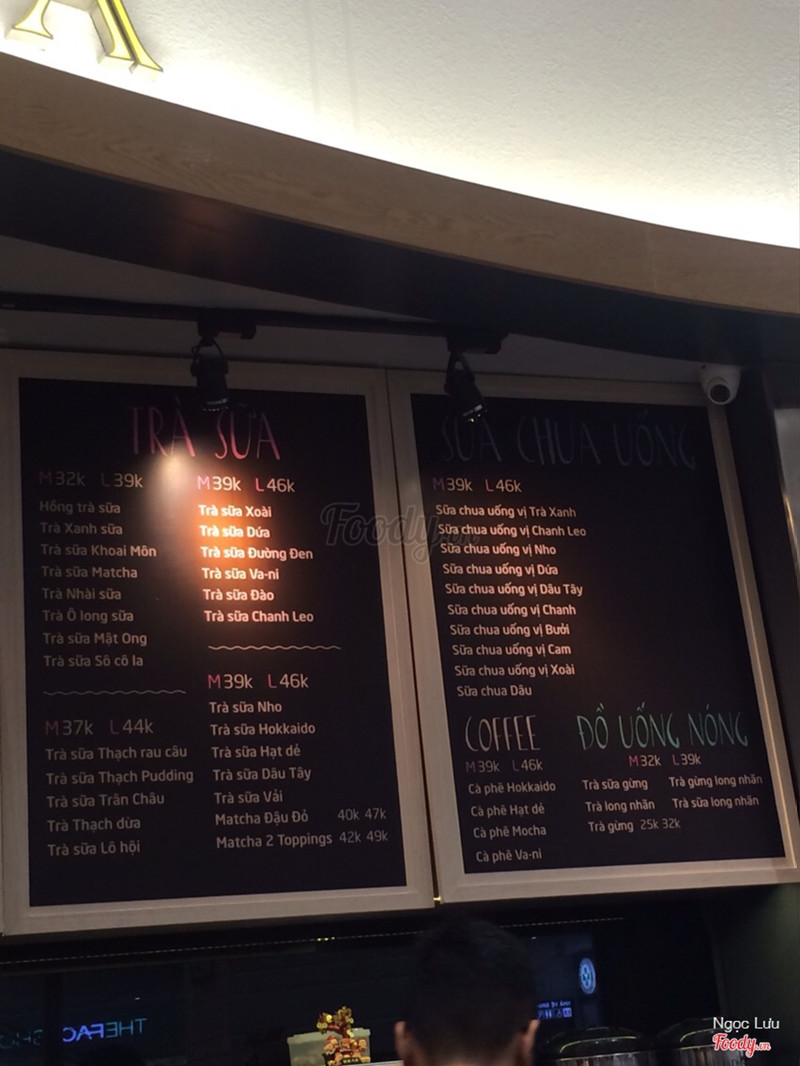 TRÀ SỮA
M32k L39k
Hồng trà sữa
Trà Xanh sữa
Trà sữa Khoai Môn
Trà sữa Matcha
Trà Nhài sữa
Trà Ô long sữa
Trà sữa Mật Ong
Trà sữa Sô cô la
M37k L44k
Trà sữa Thạch rau câu
Trà sữa Thạch Pudding
Trà sữa Trân Châu
Trà Thạch dừa
Trà sữa Lô hội
M39k L46k
Trà sữa Xoài
Trà sữa Dứa
Trà sữa Đường Đen
Trà sữa Va-ni
Trà sữa Đào
Trà sữa Chanh Leo
M39k L46k
Trà sữa Nho
Trà sữa Hokkaido
Trà sữa Hạt dẻ
Trà sữa Dâu Tây
Trà sữa Vải
Matcha Đậu Đỏ 40k 47k
Matcha 2 Toppings 42k 49k
SỮA CHUA UỐNG
M39k L46k
Sữa chua uống vị Trà Xanh
Sữa chua uống vị Chanh Leo
Sữa chua uống vị Nho
Sữa chua uống vị Dứa
Sữa chua uống vị Dâu Tây
Sữa chua uống vị Chanh
Sữa chua uống vị Bưởi
Sữa chua uống vị Cam
Sữa chua uống vị Xoài
Sữa chua Dâu
COFFEE
M39k L46k
Cà phê Hokkaido
Cà phê Hạt dẻ
Cà phê Mocha
Cà phê Va-ni
ĐỒ UỐNG NÓNG
M32k L39k
Trà sữa gừng Trà gừng long nhãn
Trà long nhãn Trà sữa long nhãn
Trà gừng 25k 32k
Foody.vn
THEFAC
Ngọc Lưu
Foody.vn